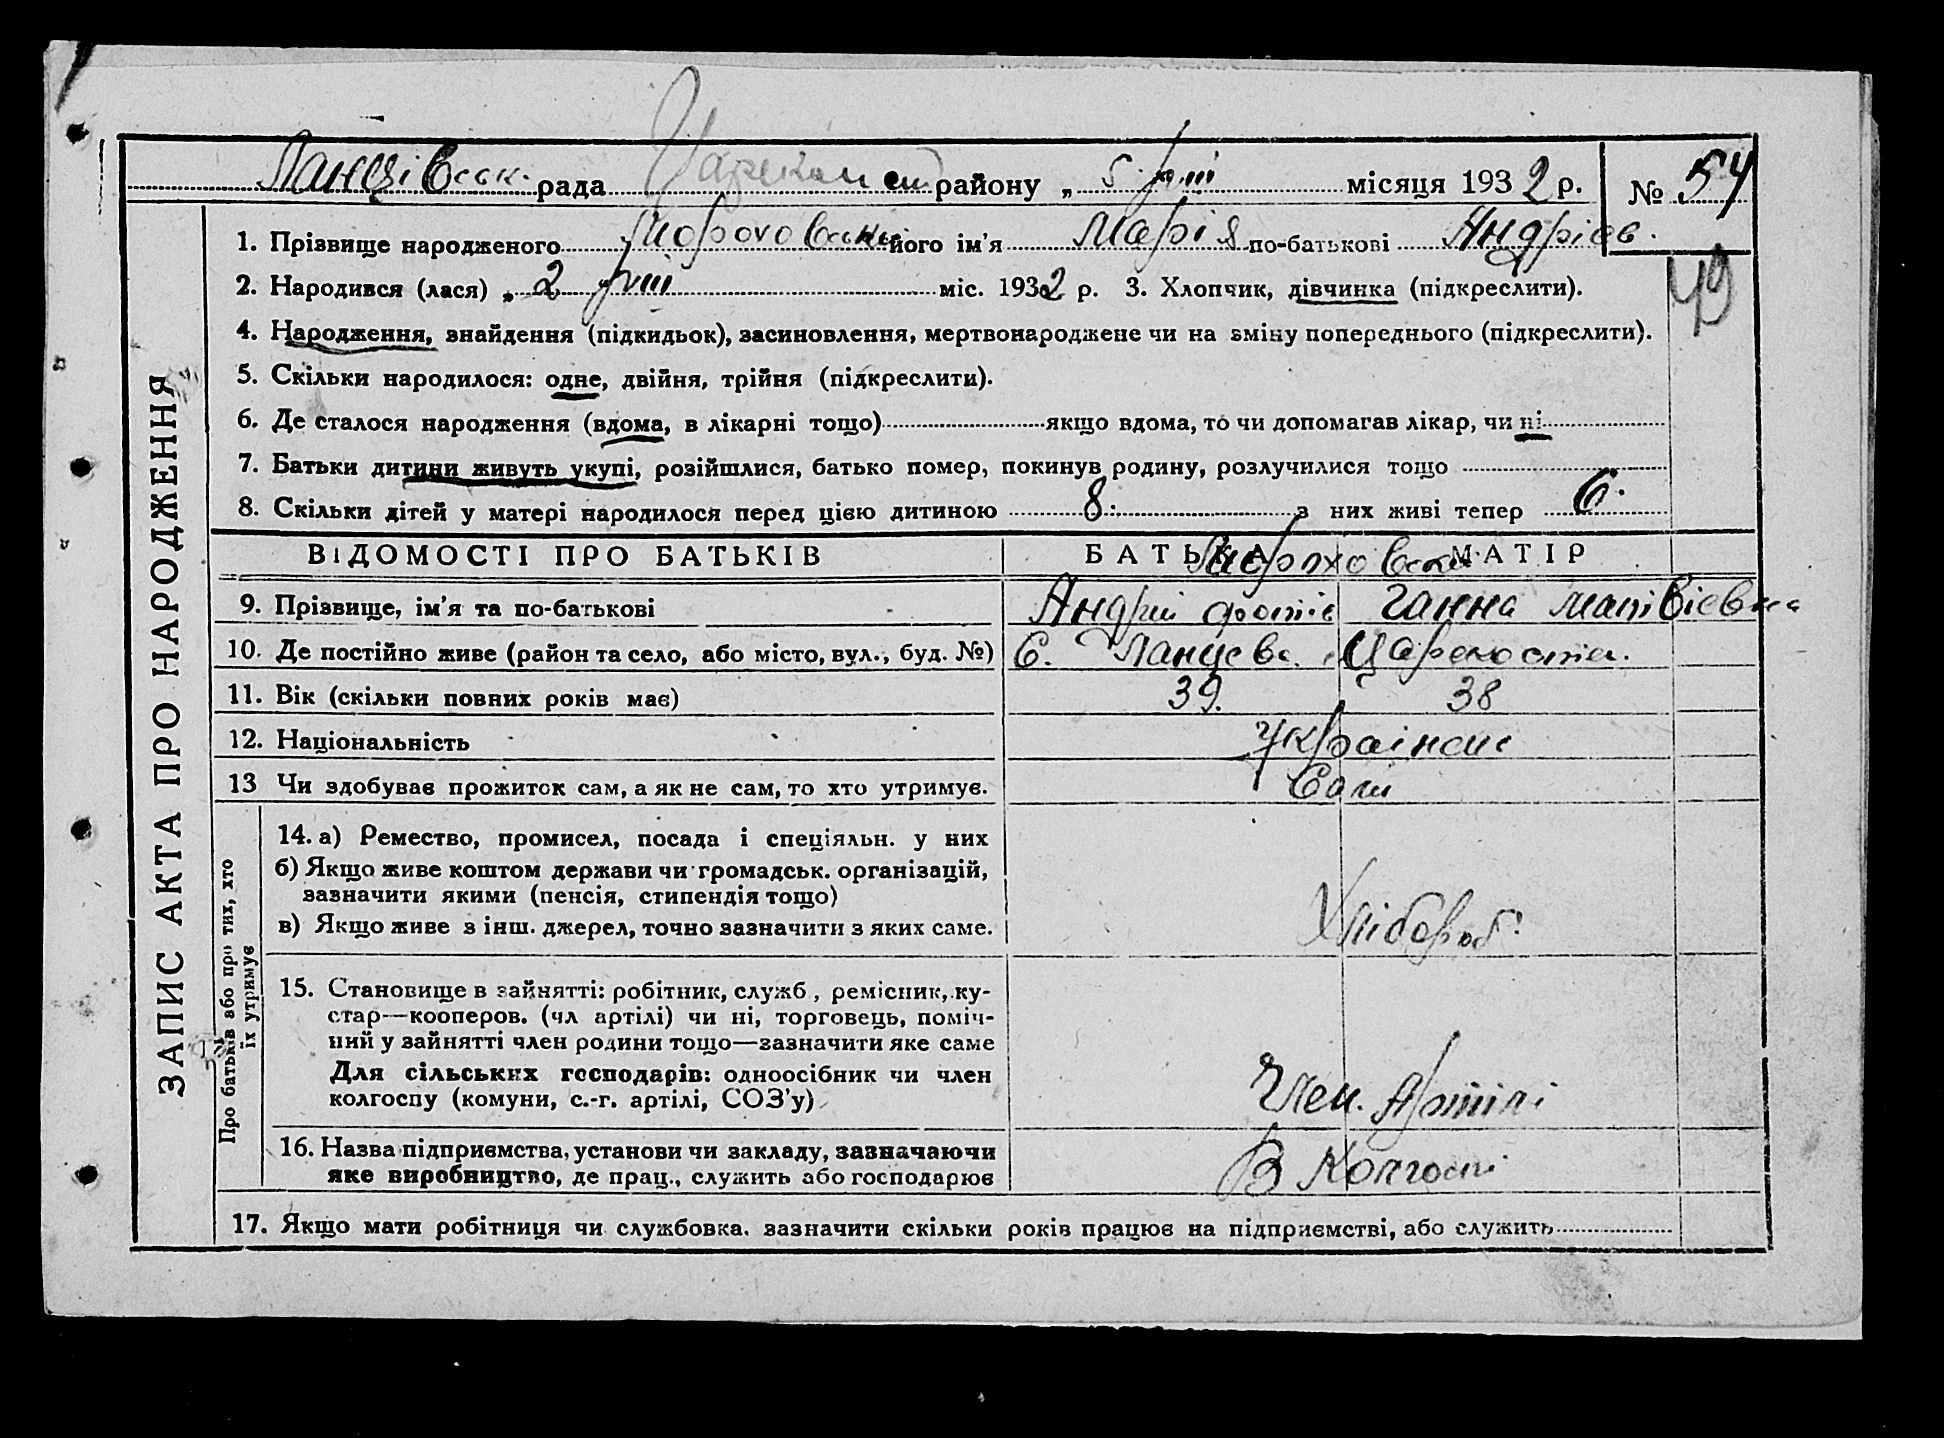 рада району „ 5 " VIII місяця 1932 р. № 54
1. Прізвище народженого його ім'я Марія по-батькові Андрієв.
49
2. Народився (лася) „ 2 VIII міс. 1932 р. 3. Хлопчик, дівчинка (підкреслити).
4. Народження, знайдення (підкидьок), засиновлення, мертвонароджене чи на зміну попереднього (підкреслити).
5. Скільки народилося: одне, двійня, трійня (підкреслити).
6. Де сталося народження (вдома, в лікарні тощо) якщо вдома, то чи допомагав лікар, чи ні
7. Батьки дитини живуть укупі, розійшлися, батько помер, покинув родину, розлучилися тощо
8. Скільки дітей у матері народилося перед цією дитиною 8. з них живі тепер 6.
ВІДОМОСТІ ПРО БАТЬКІВ БАТЬКА МАТІР
9. Прізвище, ім'я та по-батькові Андрій Фотів Ганна Матвієвна
10. Де постійно живе (район та село, або місто, вул., буд. №) С.
11. Вік (скільки повних років має) 39. 38
12. Національність Українці
13 Чи здобуває прожиток сам, а як не сам, то хто утримує. Сами
14. а) Ремество, промисел, посада і спеціяльн. у них
б) Якщо живе коштом держави чи громадськ. організацій,
зазначити якими (пенсія, стипендія тощо)
в) Якщо живе з інш. джерел, точно зазначити з яких саме. Хлібороб.
15. Становище в зайнятті: робітник, служб, ремісник, ку-
стар—кооперов. (чл артілі) чи ні, торговець, поміч-
ний у зайнятті член родини тощо—зазначити яке саме
Для сільських господарів: одноосібник чи член
колгоспу (комуни, с.-г. артілі, СОЗ'у) Член. Артілі
16. Назва підприємства, установи чи закладу, зазначаючи
яке виробництво, де прац., служить або господарює В Колгоспі
17. Якщо мати робітниця чи службовка. зазначити скільки років працює на підприємстві, або служить
ЗАПИС АКТА ПРО НАРОДЖЕННЯ
Про батьків або про тих, хто
їх утримує